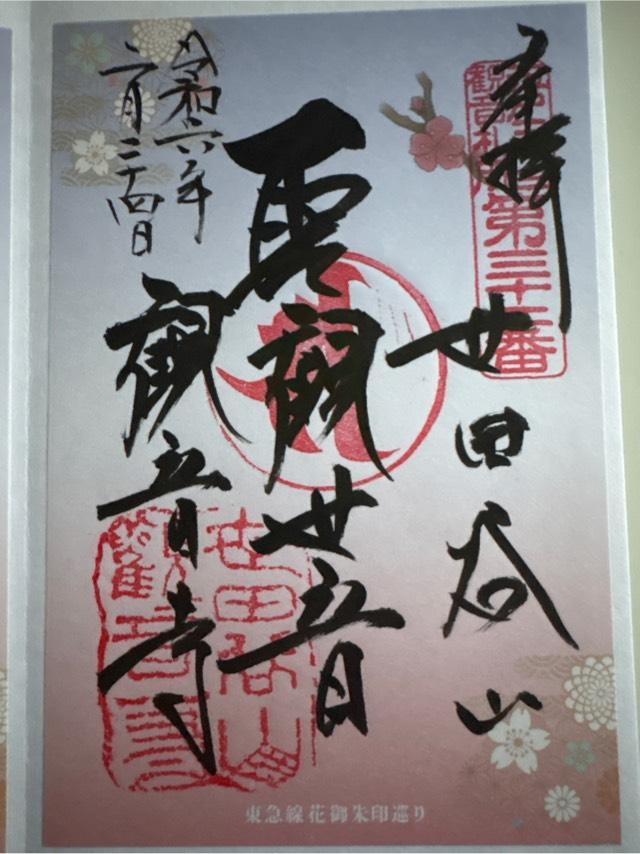 奉拝
世田谷山
聖観世音
観音寺
令和六年
二月二十四日
第三十二番
世田谷山
観音寺
東急線花御朱印巡り